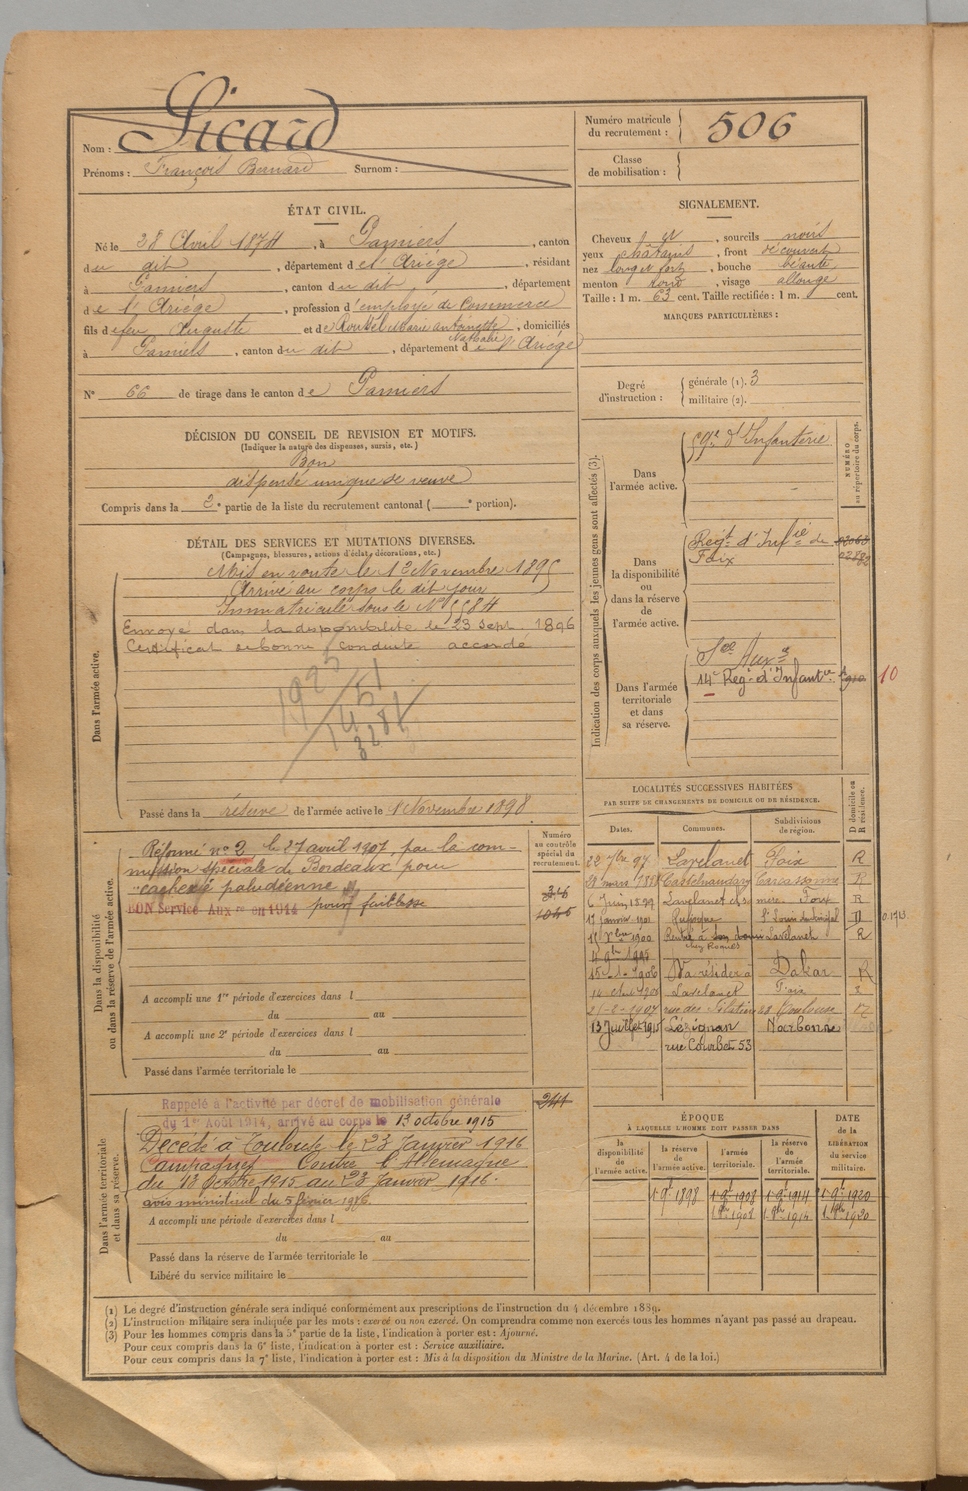 Nom : Sicard
Prénoms : François Bernard Surnom :
Numéro matricule du recrutement : 506
Classe de mobilisation :
ÉTAT CIVIL.
Né le 28 Avril 1874, à Pamiers, canton
du dit, département de l'Ariége, résidant
à Pamiers, canton du dit, département
de l'Ariége, profession d'employé de Commerce
fils de feu Auguste et de Marie Antoinette Nathalie, domiciliés
à Pamiers, canton du dit, département de l'Ariége
N° 66 de tirage dans le canton de Pamiers
SIGNALEMENT.
Cheveux et, sourcils noirs
yeux châtains, front découvert
nez long et fort, bouche béante
menton rond, visage allongé
Taille : 1 m. 63 cent. Taille rectifiée : 1 m. cent.
MARQUES PARTICULIÈRES :
Degré d'instruction : générale (1). 3
militaire (2).
DÉCISION DU CONSEIL DE REVISION ET MOTIFS.
(Indiquer la nature des dispenses, sursis, etc.)
Bon
dispensé unique de veuve
Compris dans la 2e partie de la liste du recrutement cantonal ( e portion).
DÉTAIL DES SERVICES ET MUTATIONS DIVERSES.
(Campagnes, blessures, actions d'éclat, décorations, etc.)
Dans l'armée active.
Mis en route le 12 Novembre 1895
Arrivé au corps le dit jour
Immatriculé sous le N° 5584
Envoyé dans la disponibilité le 23 Sept. 1896
Certificat de bonne conduite accordé
Passé dans la réserve de l'armée active le 1 Novembre 1898
Indication des corps auxquels les jeunes gens sont affectés (3).
NUMÉRO au répertoire du corps.
Dans l'armée active. 59e d'Infanterie
Dans la disponibilité ou dans la réserve de l'armée active.
Régt d'Infie de
Foix
Dans l'armée territoriale et dans sa réserve.
Sce Auxre
14e Reg. d'Infantie
10
LOCALITÉS SUCCESSIVES HABITÉES
PAR SUITE DE CHANGEMENTS DE DOMICILE OU DE RÉSIDENCE.
Dates. Communes. Subdivisions de région. D domicile ou R résidence.
22 7bre 97 Lavelanet Foix R
28 mars 1898 Castelnaudary Carcassonne R
6 Juin 1899 Lavelanet Foix R
17 janvier 1901 Rufisque St Louis du Sénégal D
Lavelanet R
15-1-1906 Va résider à Dakar R
Lavelanet Foix
21-2-1907 rue des Toulouse
13 Juillet 1915 Lézignan Narbonne
rue Courbet 53
Dans la disponibilité ou dans la réserve de l'armée active.
Numéro au contrôle spécial du recrutement.
Réformé n° 2 le 27 avril 1907 par la com-
mission spéciale de Bordeaux pour
"cachexie paludéenne"
BON Service Auxre en 1914 pour faiblesse
A accompli une 1re période d'exercices dans l
du au
A accompli une 2e période d'exercices dans l
du au
Passé dans l'armée territoriale le
Dans l'armée territoriale et dans sa réserve.
Rappelé à l'activité par décret de mobilisation générale
du 1er Août 1914, arrivé au corps le 13 octobre 1915
Décédé à Toulouse le 23 Janvier 1916
Campagnes Contre l'Allemagne
du 13 octobre 1915 au 23 Janvier 1916.
avis ministériel du 5 février 1916
A accompli une période d'exercices dans l
du au
Passé dans la réserve de l'armée territoriale le
Libéré du service militaire le
ÉPOQUE
À LAQUELLE L'HOMME DOIT PASSER DANS
la disponibilité de l'armée active. la réserve de l'armée active. l'armée territoriale. la réserve de l'armée territoriale. DATE de la LIBÉRATION du service militaire.
1 9e 1898 1 9e 1908 1 9e 1914 1 9e 1920
(1) Le degré d'instruction générale sera indiqué conformément aux prescriptions de l'instruction du 4 décembre 1889.
(2) L'instruction militaire sera indiquée par les mots : exercé ou non exercé. On comprendra comme non exercés tous les hommes n'ayant pas passé au drapeau.
(3) Pour les hommes compris dans la 5e partie de la liste, l'indication à porter est : Ajourné.
Pour ceux compris dans la 6e liste, l'indication à porter est : Service auxiliaire.
Pour ceux compris dans la 7e liste, l'indication à porter est : Mis à la disposition du Ministre de la Marine. (Art. 4 de la loi.)